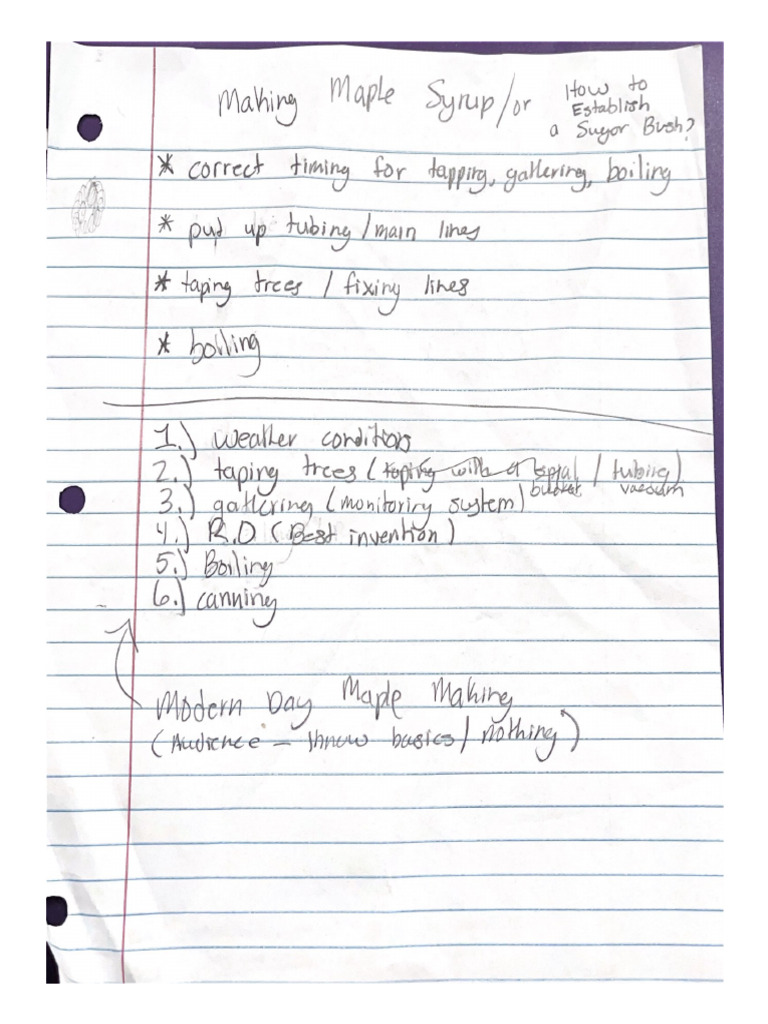 Making Maple Syrup/or How to
Establish
a Sugar Bush?
* correct timing for tapping, gathering, boiling
* put up tubing/main lines
* taping trees / fixing lines
* boiling
1.) weather conditions
2.) taping trees (taping with a spial / tubing)
bucket vacuum
3.) gathering (monitoring system)
4.) R.O (Best invention)
5.) Boiling
6.) canning
Modern Day Maple Making
(Audience - know basics/ nothing)